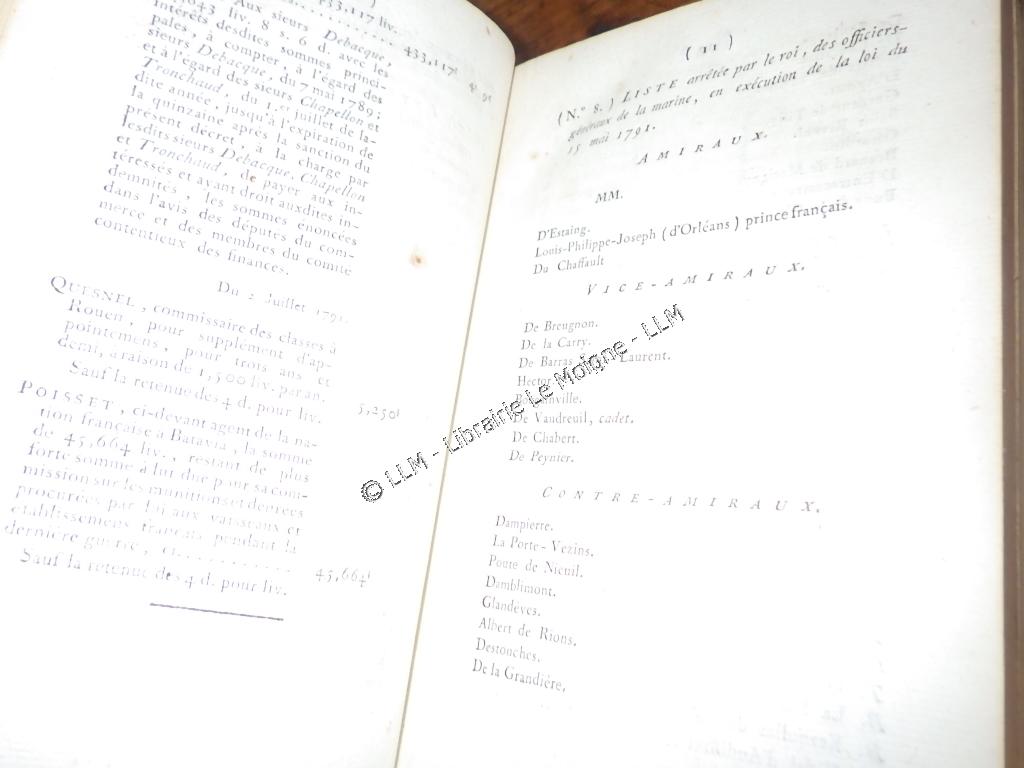 433,117 liv.
Aux sieurs Debacque,
643 liv. 8 s. 6 d. avec les 433,117l
intérêts desdites sommes princi- 4s 9d
pales, à compter, à l'égard des
sieurs Debacque, du 7 mai 1789;
et à l'égard des sieurs Chapellon et
Tronchaud, du 1.er juillet de la-
dite année, jusqu'à l'expiration de
la quinzaine après la sanction du
présent décret, à la charge par
lesdits sieurs Debacque, Chapellon
et Tronchaud, de payer aux in-
téressés et ayant droit auxdites in-
demnités, les sommes énoncées
dans l'avis des députés du com-
merce et des membres du comité
contentieux des finances.
Du 2 Juillet 1791.
QUESNEL, commissaire des classes à
Rouen, pour supplément d'ap-
pointemens, pour trois ans et
demi, à raison de 1,500 liv. par an. 5,250l
Sauf la retenue des 4 d. pour liv.
POISSET, ci-devant agent de la na-
tion française à Batavia, la somme
de 45,664 liv., restant de plus
forte somme à lui due pour sa com-
mission sur les munitions et denrées
procurées par lui aux vaisseaux et
établissemens français pendant la
dernière guerre, ci........... 45,664l
Sauf la retenue des 4 d. pour liv.
( 11 )
( N.° 8. ) LISTE arrêtée par le roi, des officiers-
généraux de la marine, en exécution de la loi du
15 mai 1791.
AMIRAUX.
MM.
D'Estaing.
Louis-Philippe-Joseph ( d'Orléans ) prince français.
Du Chaffault
VICE-AMIRAUX.
De Breugnon.
De la Carry.
De Barras Laurent.
Hector
De Vaudreuil, cadet.
De Chabert.
De Peynier.
CONTRE-AMIRAUX.
Dampierre.
La Porte-Vezins.
Poute de Nieuil.
Damblimont.
Glandèves.
Albert de Rions.
Destouches.
De la Grandière,
© LLM - Librairie Le Moigne - LLM